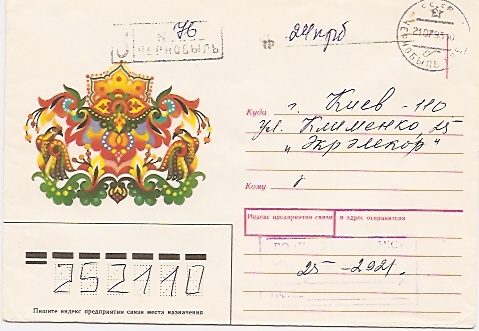 76
ЧЕРНОБЫЛЬ
24 крб
СССР
21 07 93 16
ЧЕРНОБЫЛЬ
Куда г. Киев - 110
ул. Клименко, 25
„Экрэлекор"
Кому
Индекс предприятия связи и адрес отправителя
25 - 2921.
252110
Пишите индекс предприятия связи места назначения